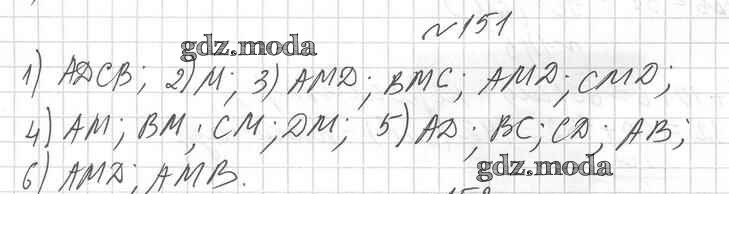 №151
gdz.moda
1) ADCB; 2) M; 3) AMD; BMC; AMD; CMD;
4) AM; BM; CM; DM; 5) AD; BC; CD; AB;
gdz.moda
6) AMD; AMB.